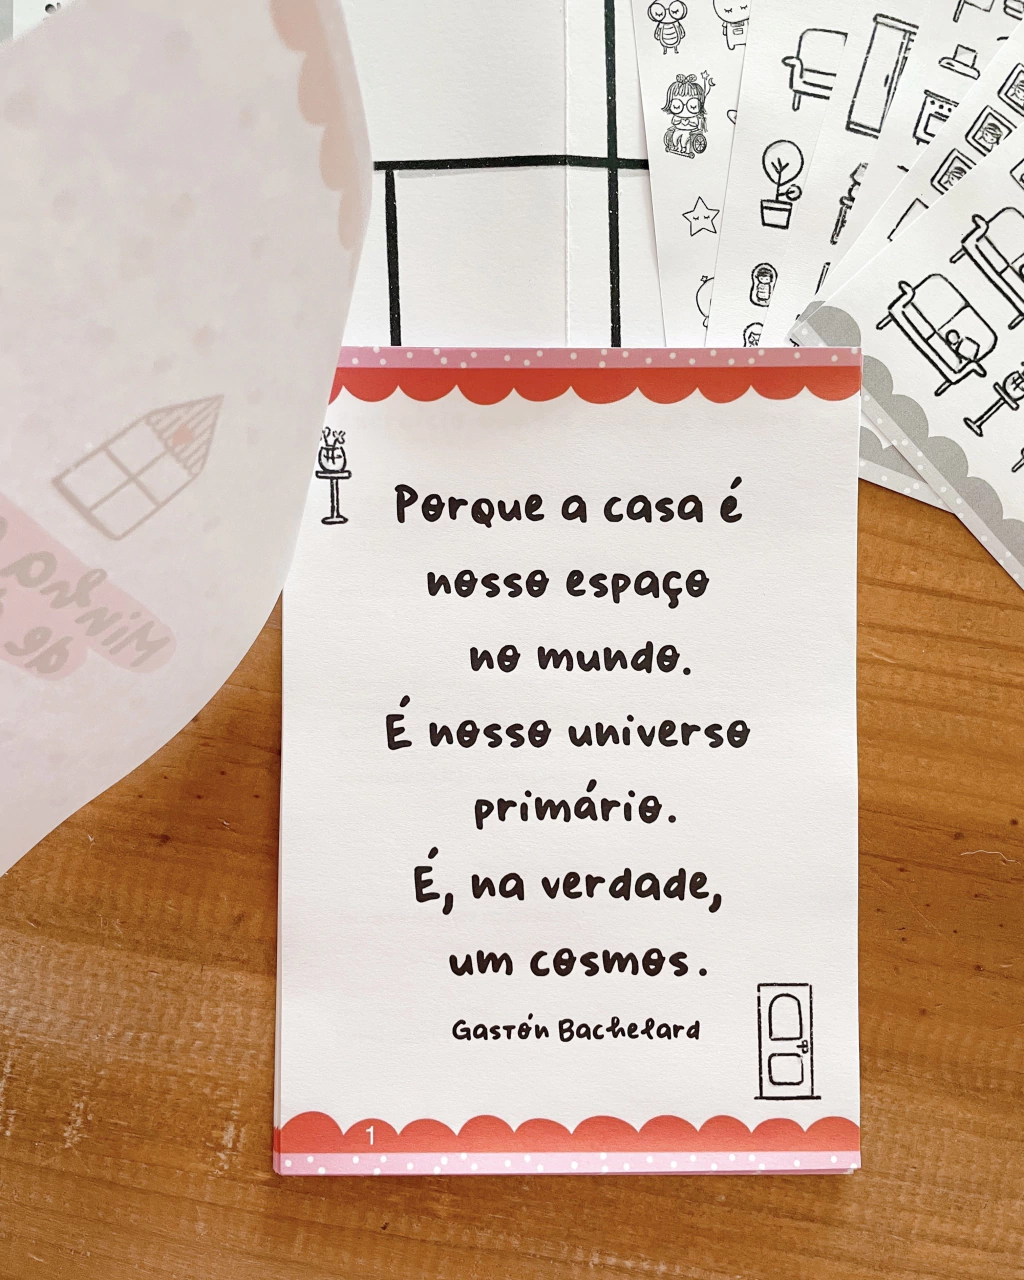 Porque a casa é
nosso espaço
no mundo.
É nosso universo
primário.
É, na verdade,
um cosmos.
Gastón Bachelard
1